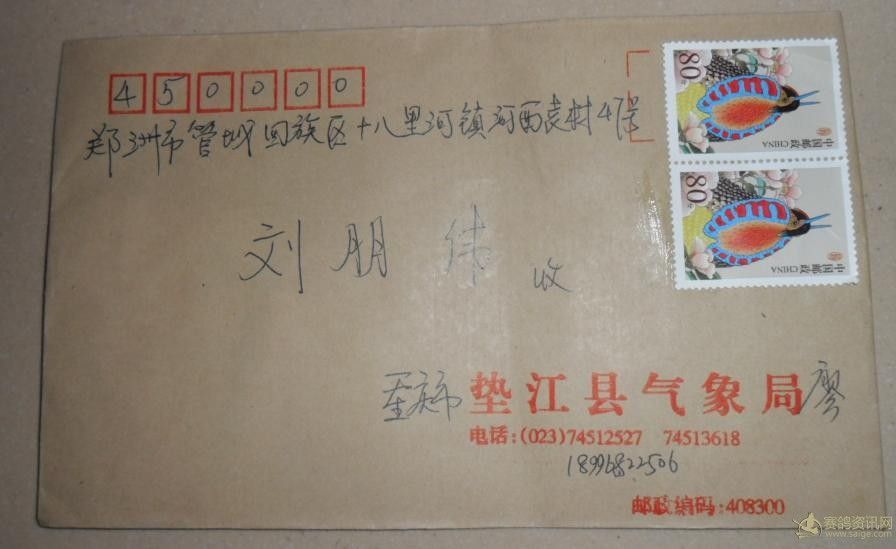 450000
郑洲市管城回族区十八里河镇河西袁村4保
80分
中国邮政 CHINA
80分
中国邮政 CHINA
刘朋伟 收
重庆市 垫江县气象局 廖
电话:(023)74512527 74513618
18996822506
邮政编码:408300
赛鸽资讯网
www.saige.com